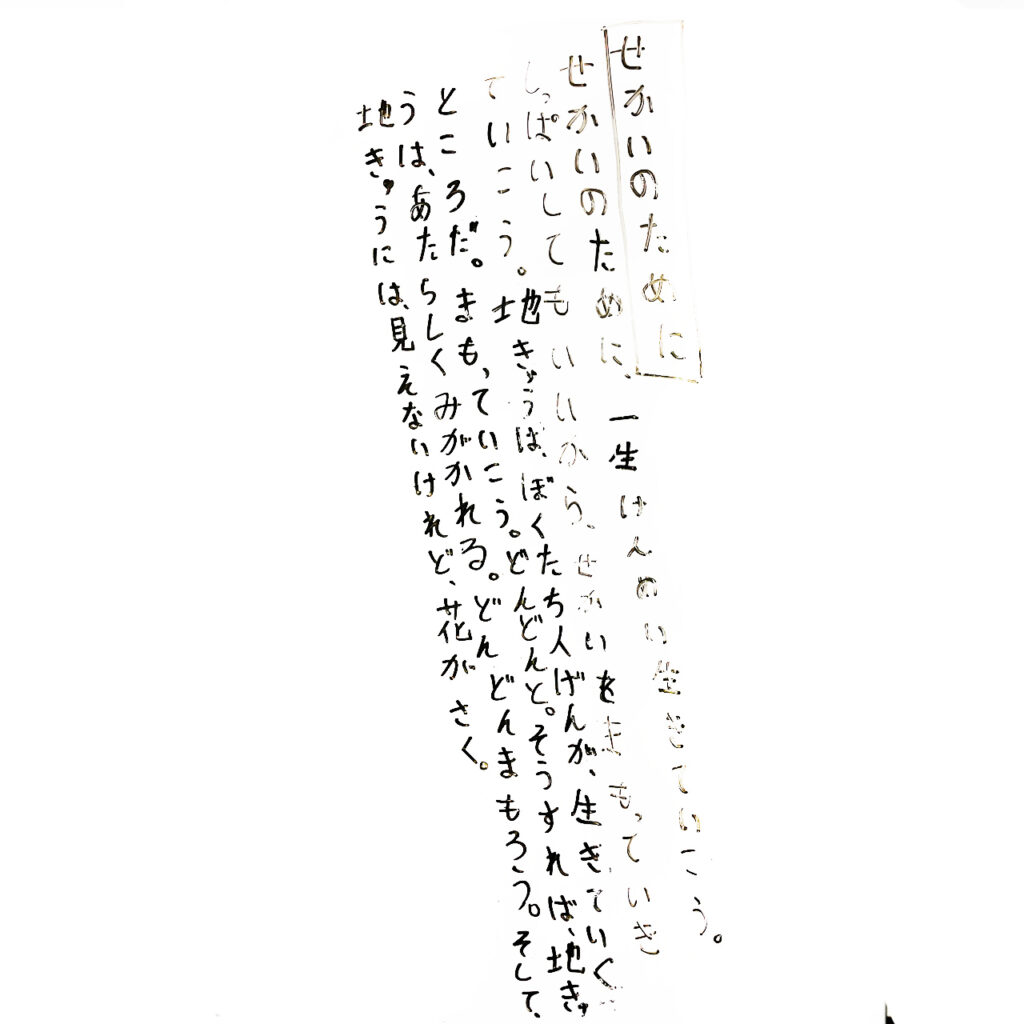 せかいのために
せかいのために、一生けんめい生きていこう。
しっぱいしてもいいから、せかいをまもっていき
ていこう。地きゅうは、ぼくたち人げんが、生きていく
ところだ。まもっていこう。どんどんと。そうすれば、地きゅ
うは、あたらしくみがかれる。どんどんまもろう。そして、
地きゅうには、見えないけれど、花がさく。